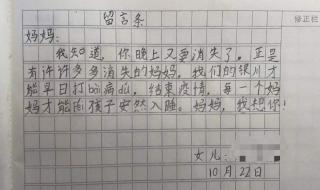 修正栏
留言条
妈妈：
我知道，你晚上又要消失了。正是
有许许多多消失的妈妈，我们的银川才
能早日打bài病dú，结束疫情，每一个妈
妈才能向孩子安然入睡。妈妈，我想你！
女儿：
10月22日